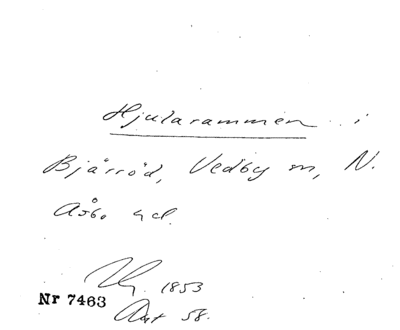 Hjularammen i
Bjärröd, Vedby sn, N.
Åsbo hd.
1853
Nr 7463
58.